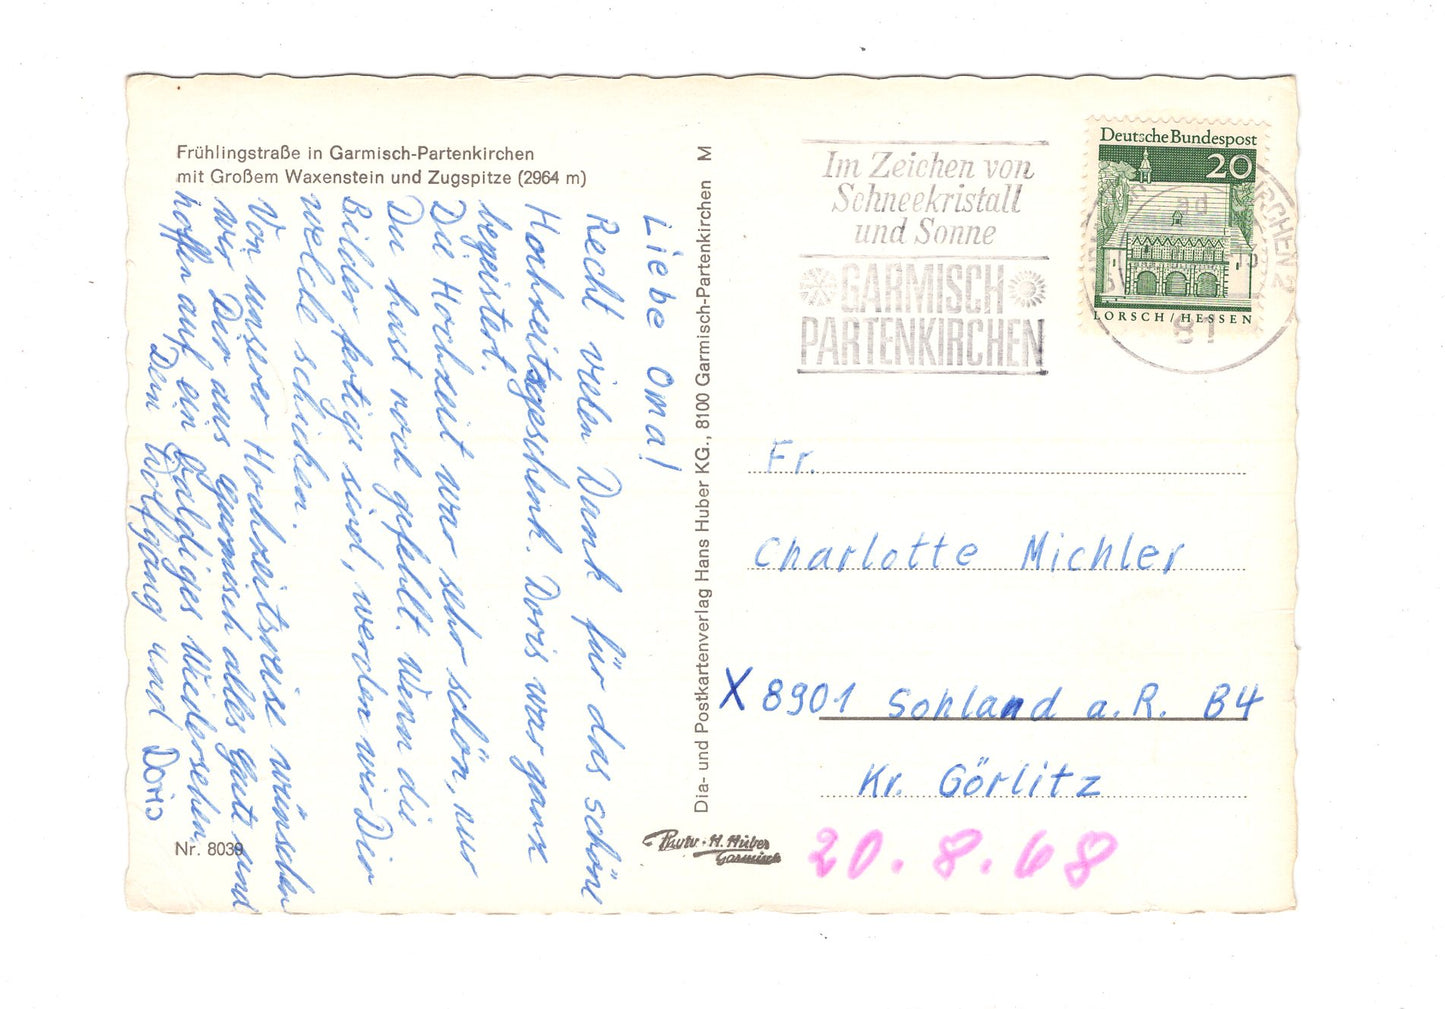 Frühlingstraße in Garmisch-Partenkirchen
mit Großem Waxenstein und Zugspitze (2964 m)
Liebe Oma!
Recht vielen Dank für das schöne
Hochzeitsgeschenk. Doris war ganz
begeistert.
Die Hochzeit war sehr schön, nur
Du hast noch gefehlt. Wenn die
Bilder fertig sind, werden wir Dir
welche schicken.
Von unserer Hochzeitsreise wünschen
wir Dir aus Garmisch alles Gute und
hoffen auf ein baldiges Wiedersehen
Dein Wolfgang und Doris
Nr. 8039
Dia- und Postkartenverlag Hans Huber KG., 8100 Garmisch-Partenkirchen M
H. Huber
Garmisch
Im Zeichen von
Schneekristall
und Sonne
GARMISCH
PARTENKIRCHEN
Deutsche Bundespost
20
LORSCH/HESSEN
81
Fr.
Charlotte Michler
X 8901 Sohland a. R. B4
Kr. Görlitz
20.8.68